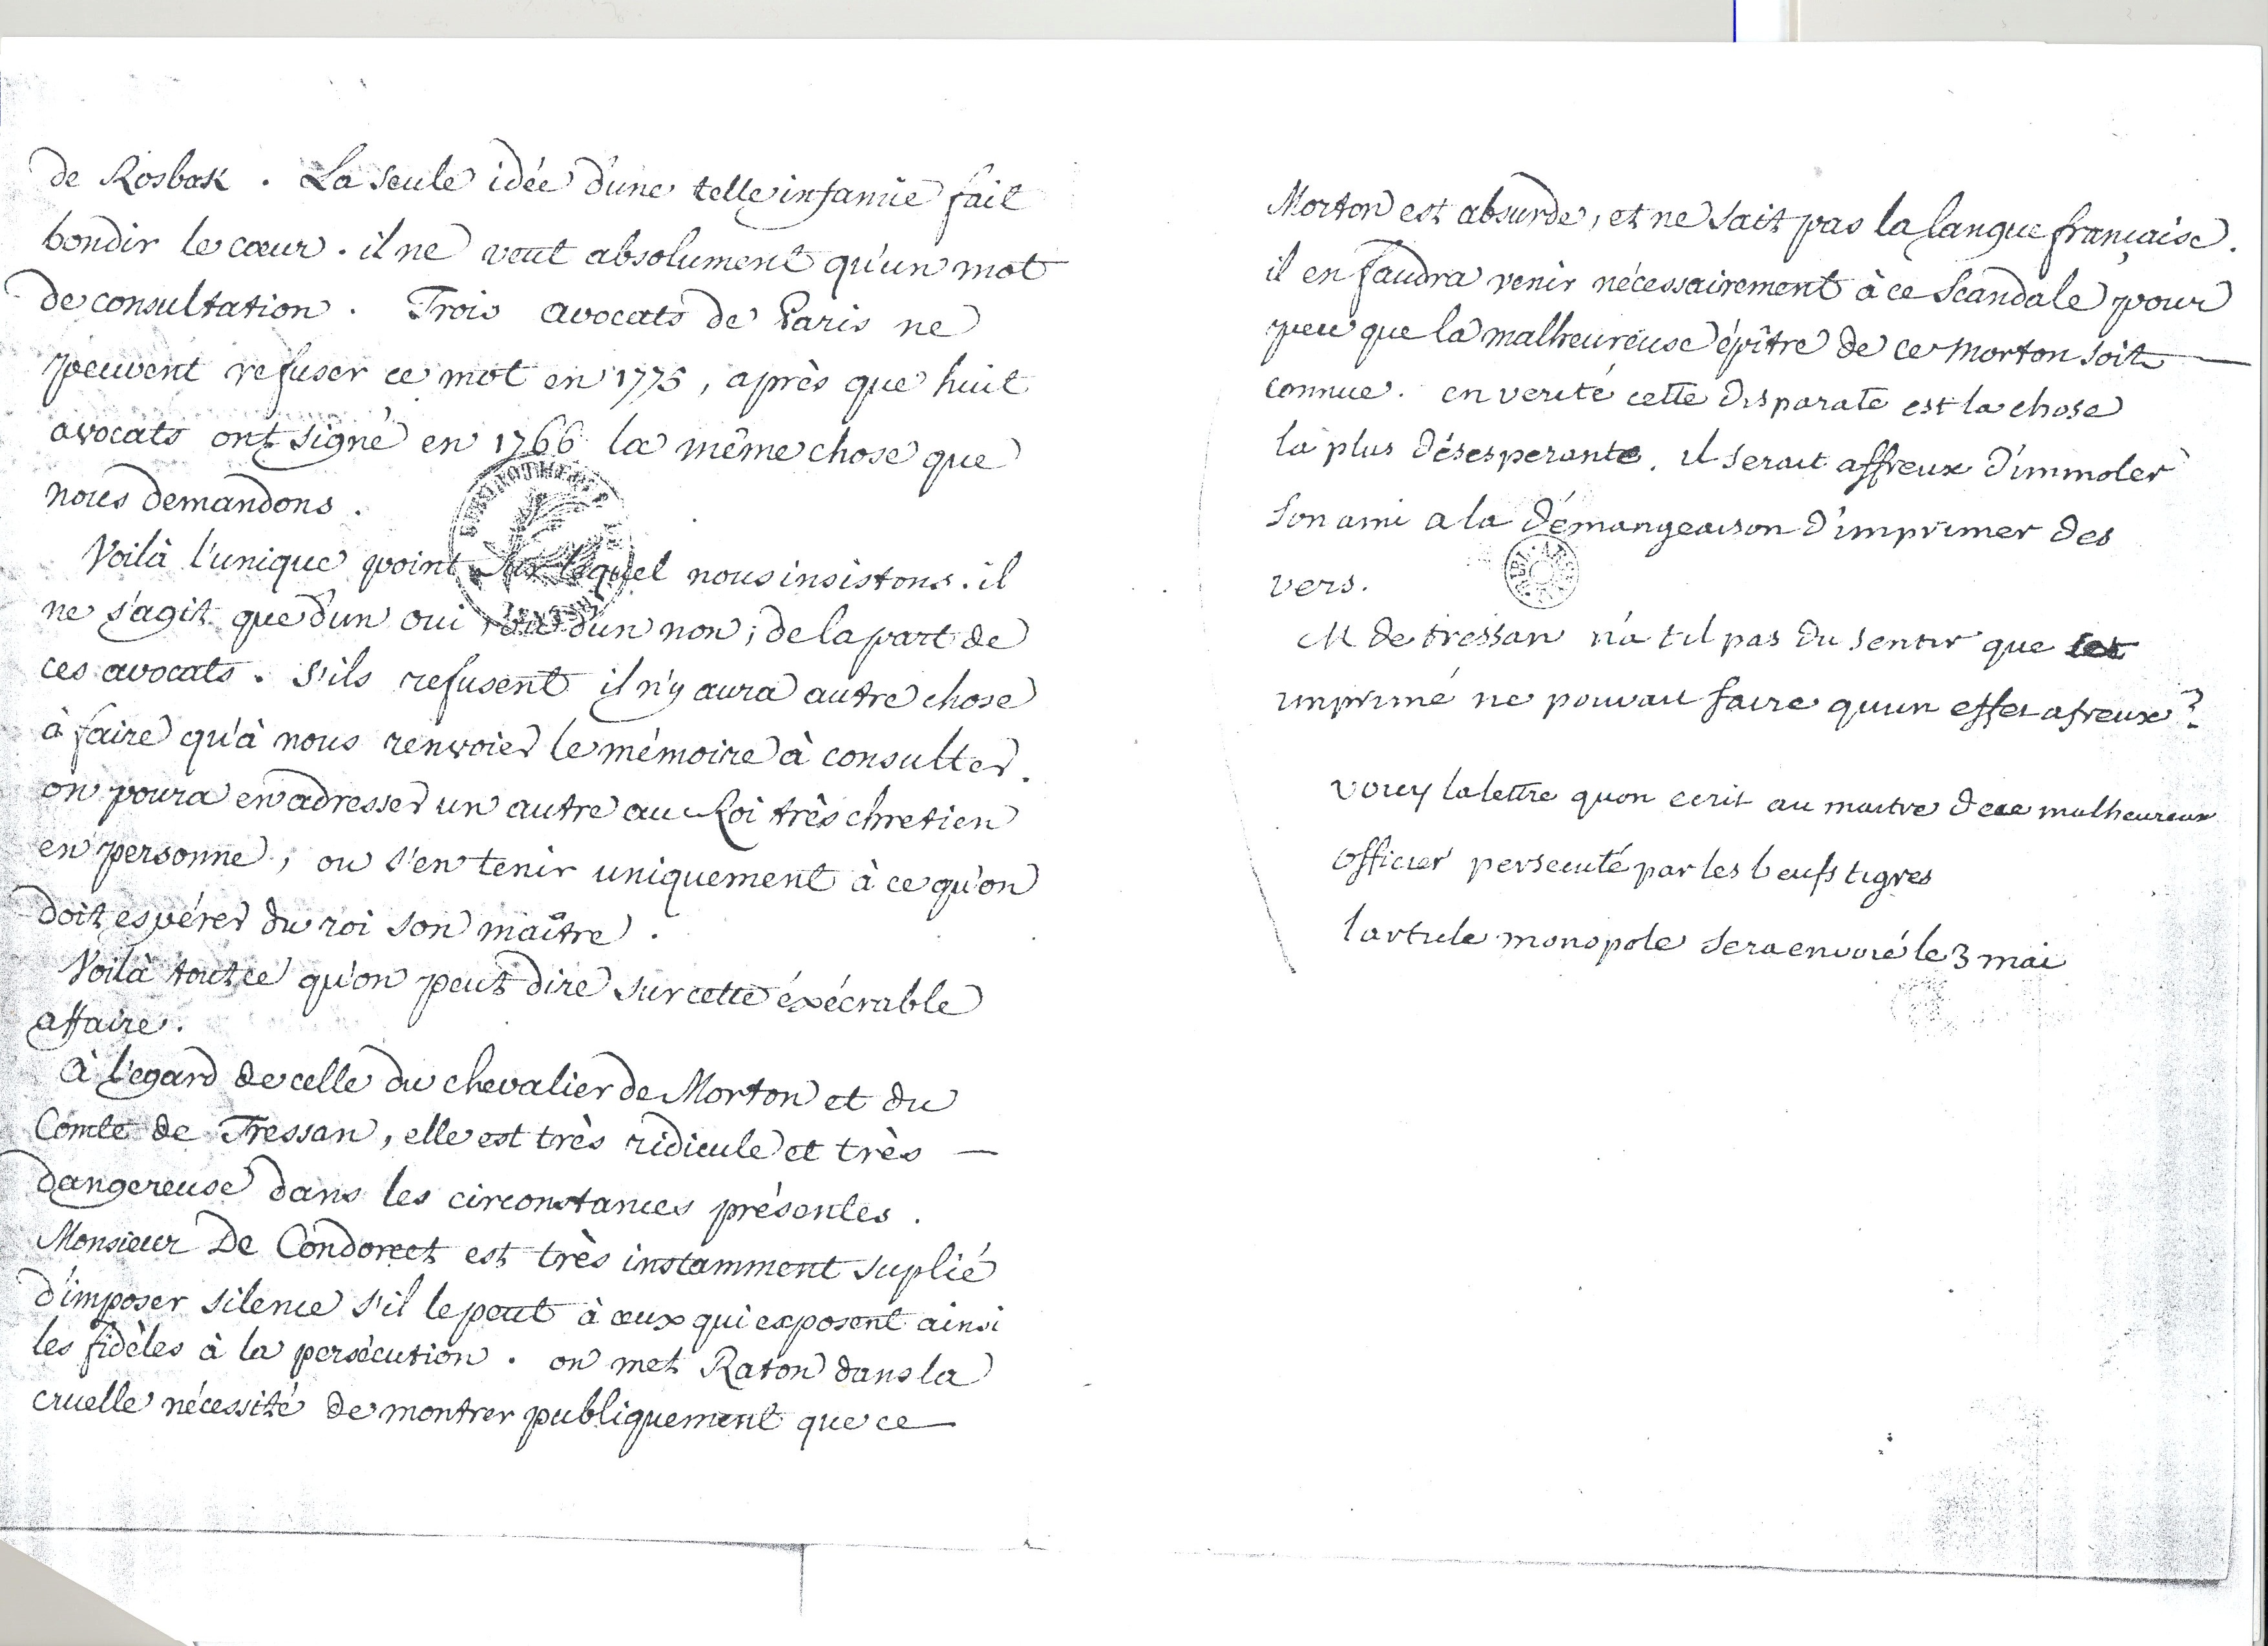 de Rosbak. La seule idée d'une telle infamie fait
bondir le cœur. il ne veut absolument qu'un mot
de consultation. Trois avocats de Paris ne
peuvent refuser ce mot en 1775, après que huit
avocats ont signé en 1766 la même chose que
nous demandons.
Voilà l'unique point sur lequel nous insistons. il
ne s'agit que d'un oui ou d'un non, de la part de
ces avocats. S'ils refusent il n'y aura autre chose
à faire qu'à nous renvoier le mémoire à consulter.
on poura en adresser un autre au Roi très chretien
en personne, ou s'en tenir uniquement à ce qu'on
doit espérer du roi son maître.
Voilà tout ce qu'on peut dire sur cette éxécrable
affaire.
à l'egard de celle du chevalier de Morton et du
Comte de Tressan, elle est très ridicule et très —
dangereuse dans les circonstances présentes.
Monsieur De Condorcet est très instamment suplié
d'imposer silence s'il le peut à ceux qui exposent ainsi
les fidèles à la persécution. on met Raton dans la
cruelle nécessité de montrer publiquement que ce
Morton est absurde, et ne sait pas la langue française.
il en faudra venir nécessairement à ce scandale pour
peu que la malheureuse épitre de ce Morton soit —
connue. en verité cette disparate est la chose
la plus désesperante. il serait affreux d'immoler
son ami a la démangeaison d'imprimer des
vers.
M de tressan na til pas du sentir que cet
imprimé ne pouvait faire quun effet afreux?
voicy la lettre quon ecrit au maitre de ce malheureux
officier persecuté par les beufs tigres
larticle monopole sera envoié le 3 mai